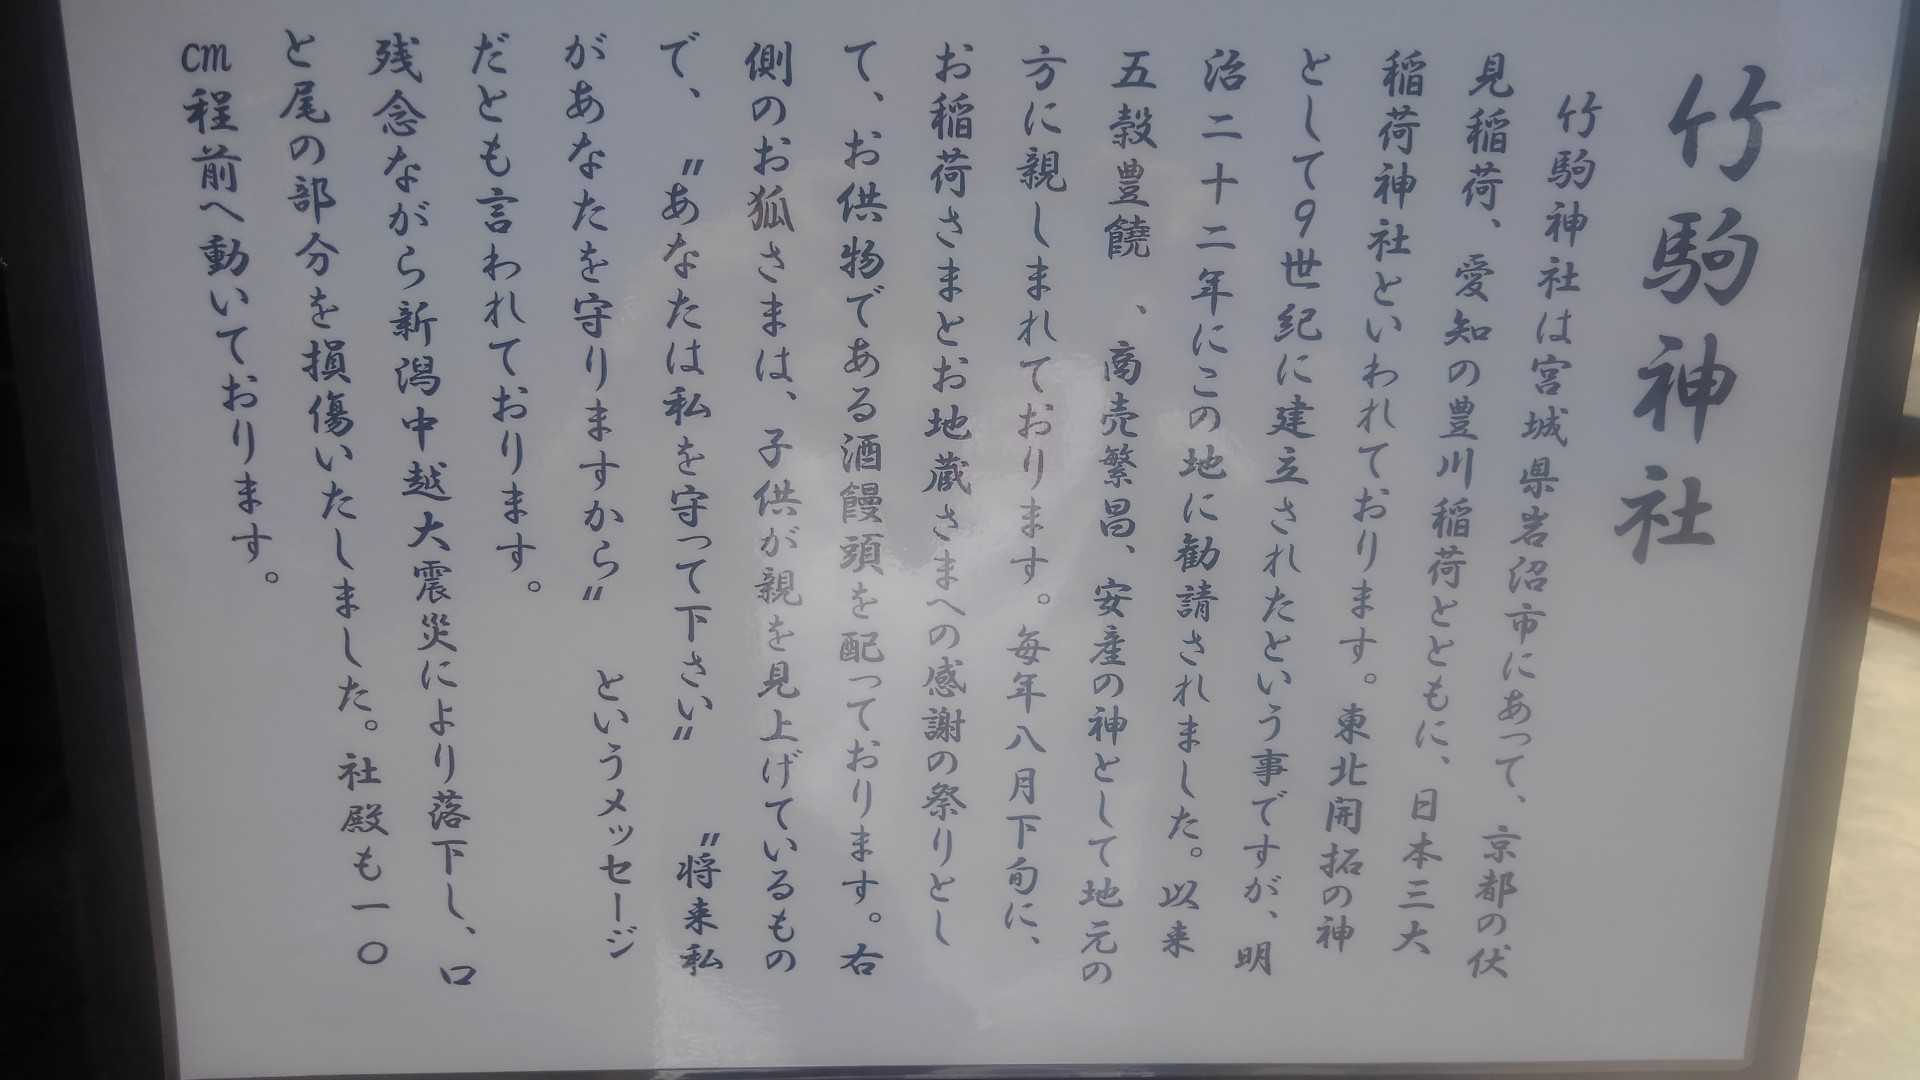 竹駒神社
竹駒神社は宮城県岩沼市にあって、京都の伏
見稲荷、愛知の豊川稲荷とともに、日本三大
稲荷神社といわれております。東北開拓の神
として9世紀に建立されたという事ですが、明
治二十二年にこの地に勧請されました。以来
五穀豊饒、商売繁昌、安産の神として地元の
方に親しまれております。毎年八月下旬に、
お稲荷さまとお地蔵さまへの感謝の祭りとし
て、お供物である酒饅頭を配っております。右
側のお狐さまは、子供が親を見上げているもの
で、〃あなたは私を守って下さい〃 〃将来私
があなたを守りますから〃 というメッセージ
だとも言われております。
残念ながら新潟中越大震災により落下し、口
と尾の部分を損傷いたしました。社殿も一〇
cm程前へ動いております。